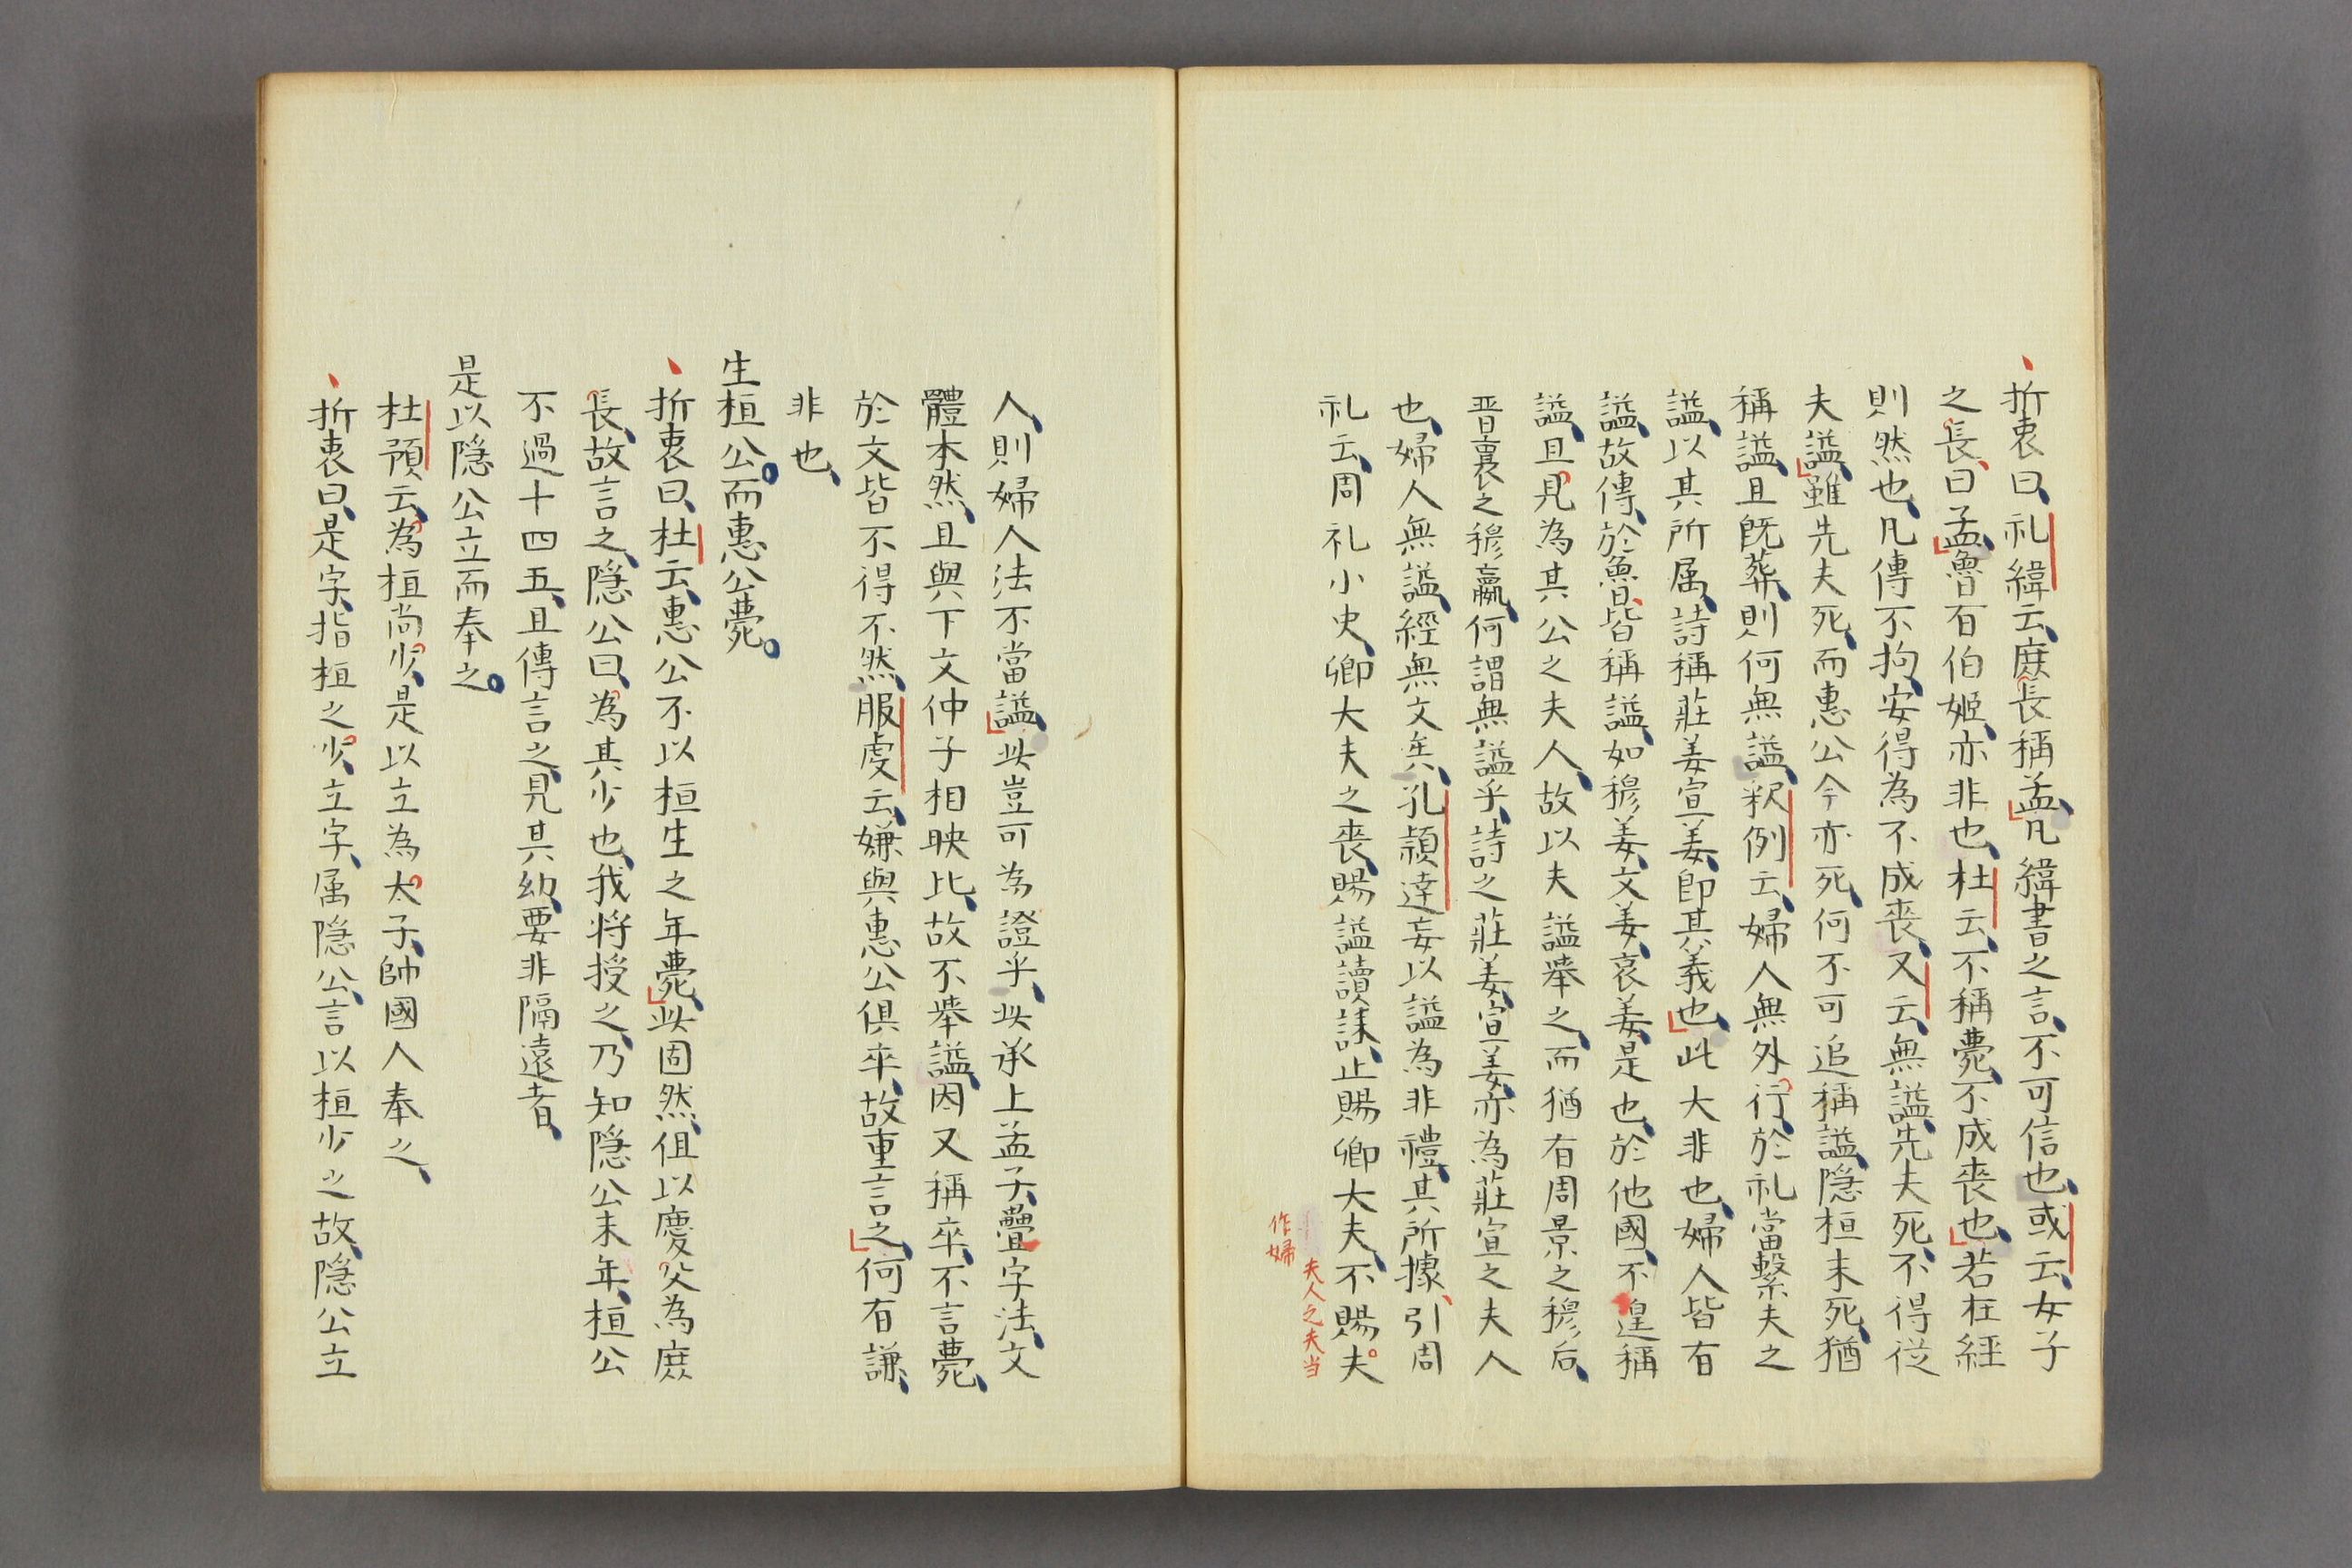 折衷曰、礼緯云、庶長稱孟、凡緯書之言、不可信也、或云、女子
之長、曰孟、魯有伯姬、亦非也、杜云、不稱薨、不成喪也、若在經
則然也、凡傳不拘、安得為不成喪、又云、無諡、先夫死、不得從
夫諡、雖先夫死、而惠公今亦死、何不可追稱諡、隐桓未死、猶
稱諡、且既葬、則何無諡、釈例云、婦人無外行、於礼當繫夫之
諡、以其所属、詩稱莊姜宣姜、即其義也、此大非也、婦人皆有
諡、故傳、於魯、皆稱諡、如穆姜、文姜、哀姜、是也、於他國、不遑稱
諡、且見為其公之夫人、故以夫諡舉之、而猶有周景之穆后、
晋襄之穆嬴、何謂無諡乎、詩之莊姜、宣姜、亦為莊宣之夫人
也、婦人無諡、經無文矣、孔頴達妄以諡為非禮、其所據、引周
礼云、周礼小史、卿大夫之喪、賜諡讀誄、止賜卿大夫、不賜夫
夫人之夫当
作婦
人、則婦人法不當諡、此豈可為證乎、此承上孟子、疊字法、文
體本然、且與下文仲子相映比、故不舉諡、因又稱卒、不言薨、
於文皆不得不然、服虔云、嫌與惠公俱卒、故重言之、何有謙、
非也、
生桓公。而惠公薨。
折衷曰、杜云、惠公不以桓生之年薨、此固然、但以慶父為庶
長、故言之、隐公曰、為其少也、我将授之、乃知隐公末年、桓公
不過十四五、且傳言之、見其幼、要非隔遠者、
是以隐公立而奉之。
杜預云、為桓尚少、是以立為太子、帥國人奉之、
折衷曰、是字、指桓之少、立字、属隐公、言以桓少之故、隐公立